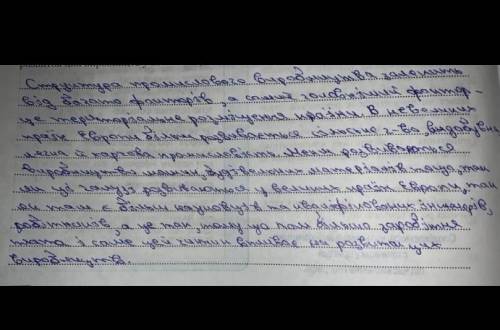 Структура промислового виробництва залежить
від багато факторів, а самий головніший фактор -
це територіальне розміщення країни. В невеликих
країн Європи більш розвивається сільське г-во, видобувна
легка й харчова промисловість. Менш розвивається
виробництва машин, будівельних матеріалів тощо, так
як ці галузі розвиваються у великих країн Європи, так
як там є більш наукових та кваліфікованих інженерів,
робітників, а це так, тому що там більша заробітня
плата і саме цей чинник впливає на розвиток цих
виробництв.